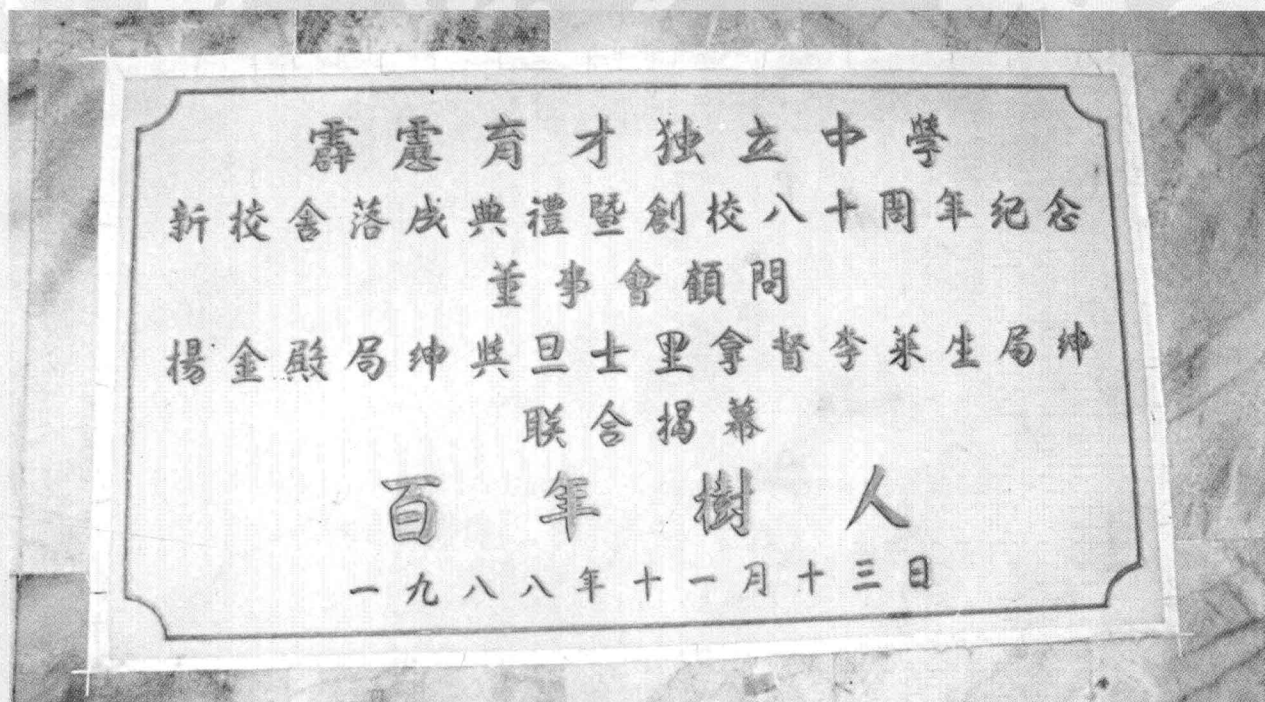 霹靂育才独立中學
新校舍落成典禮暨創校八十周年纪念
董事會顧問
楊金殿局绅與旦士里拿督李萊生局绅
联合揭幕
百年樹人
一九八八年十一月十三日